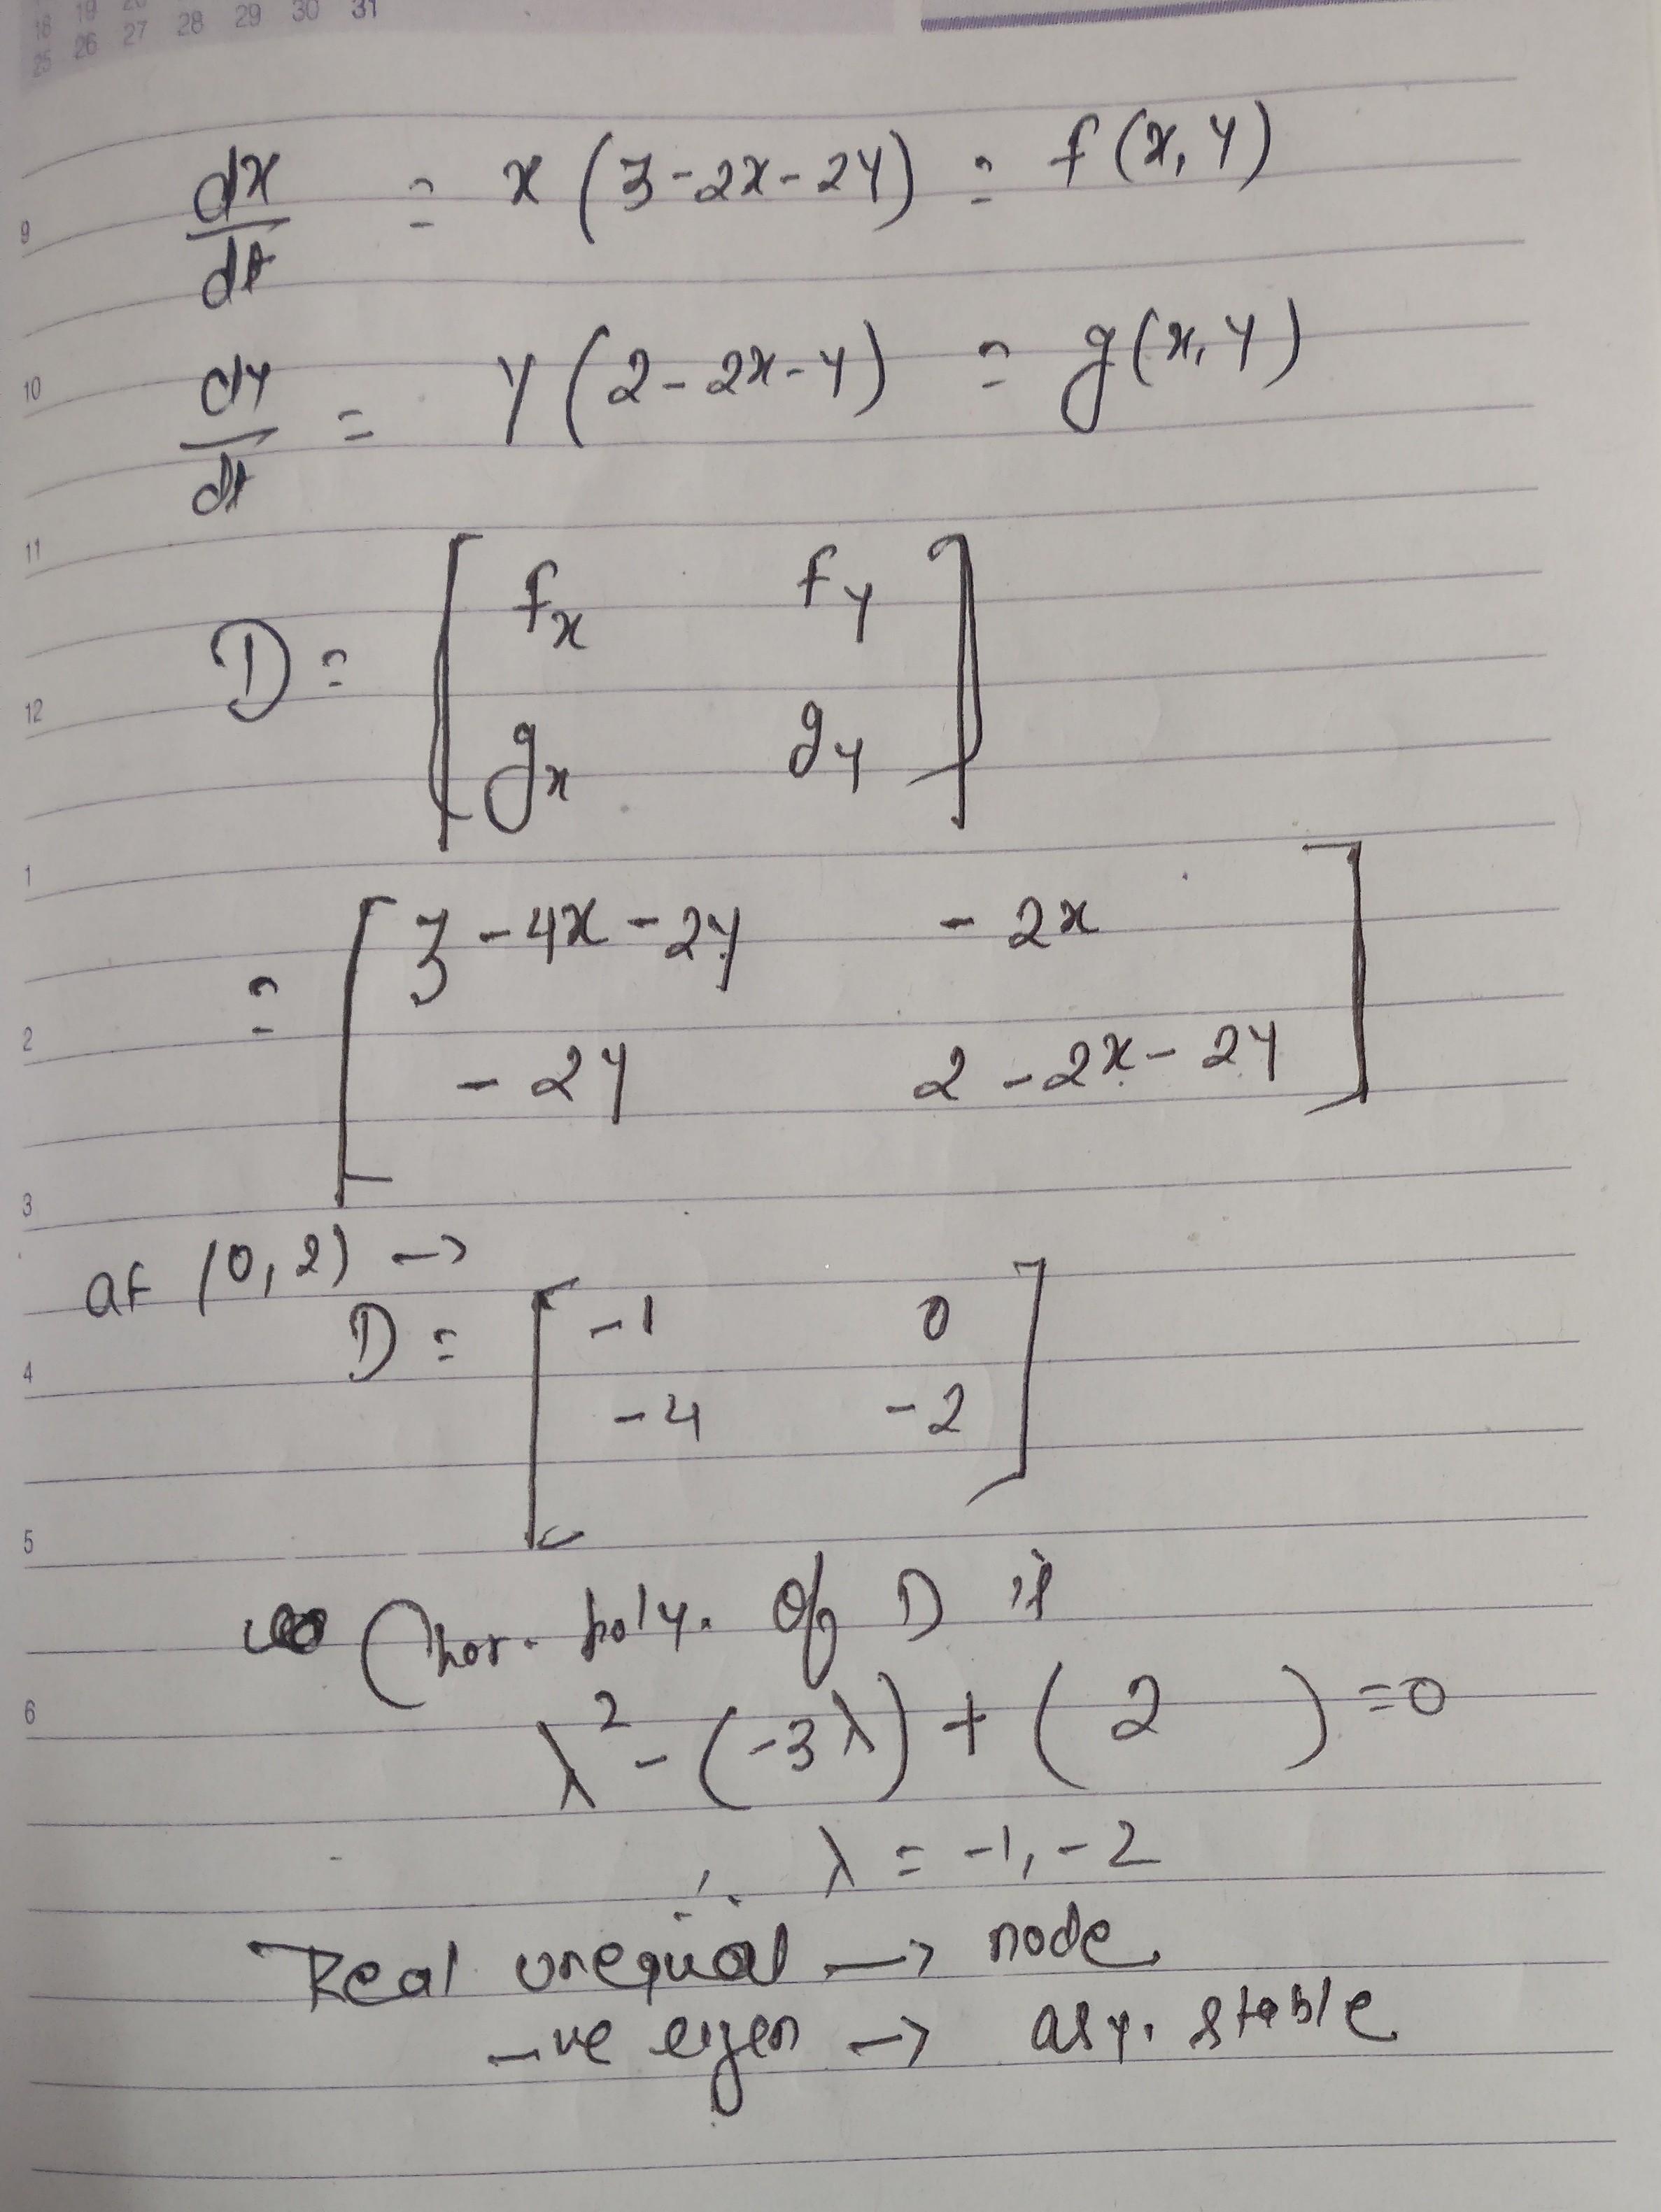 18 19 20 28 29 30 31
25 26 27
dx/dt = x (3-2x-2y) = f(x,y)
9
dy/dt = y (2-2x-y) = g(x,y)
10
11
D = [ fx fy
12
gx gy ]
1
= [ 3-4x-2y -2x
2
-2y 2-2x-2y ]
3
at (0,2) →
D = [ -1 0
4
-4 -2 ]
5
Char. poly. of D is
6
λ² - (-3λ) + ( 2 ) = 0
∴ λ = -1, -2
Real unequal → node
-ve eigen → asy. stable